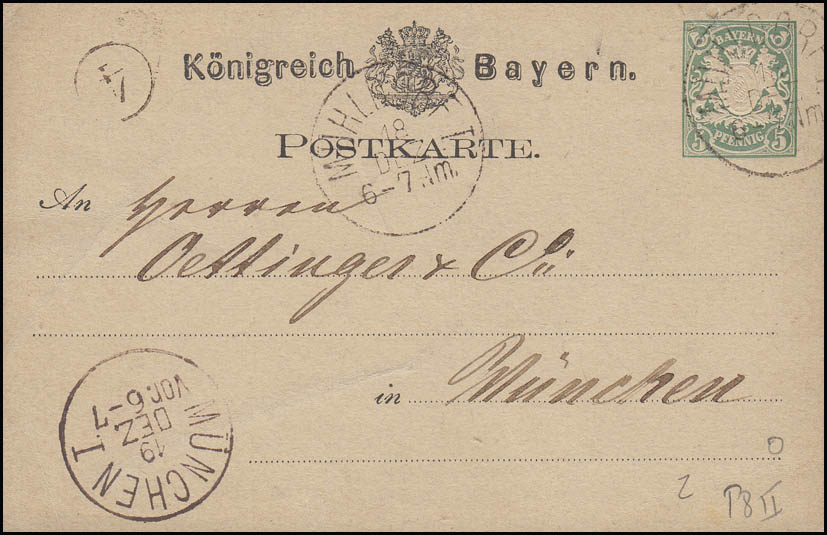 Königreich Bayern.
BAYERN
5 5
5 PFENNIG 5
POSTKARTE.
18
DEZ
6-7 Nm.
An Herren
Oettinger & Cie
in München
MÜNCHEN I.
19
DEZ
VOR. 6-7
P8 II